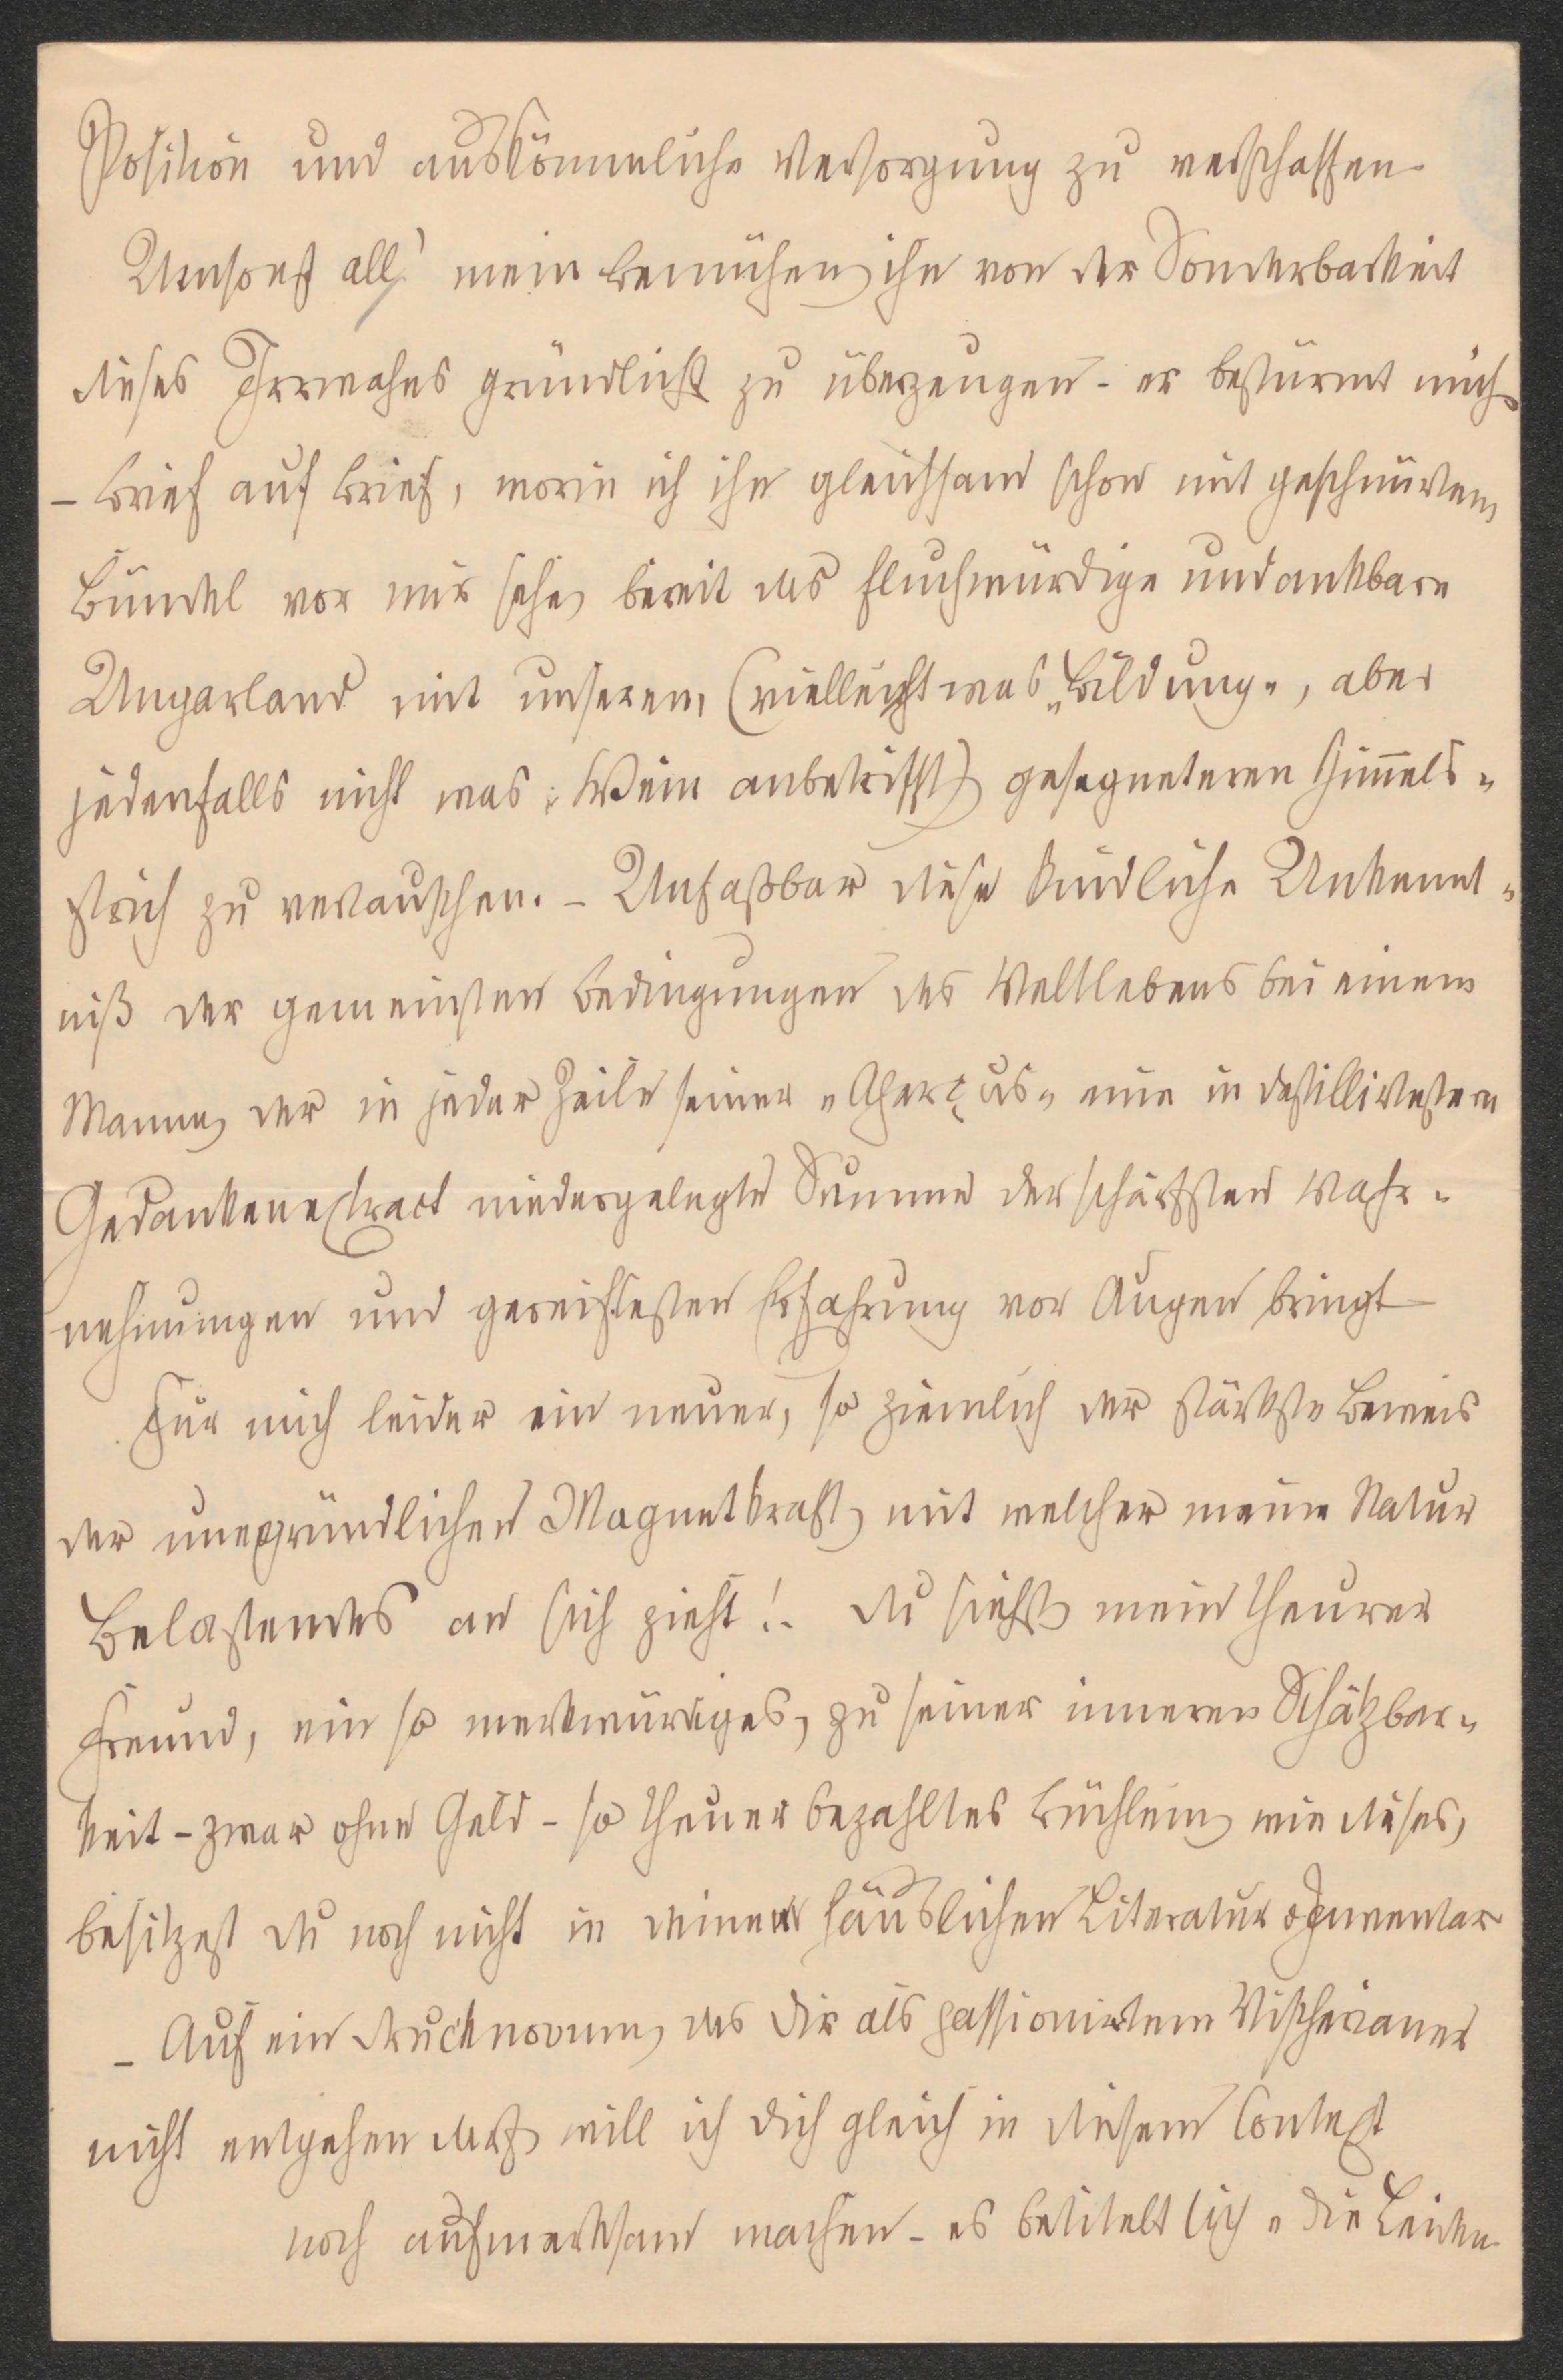 Position und auskömmliche Versorgung zu verschaffen
Umsonst all' mein Bemühen, ihn von der Sonderbarkeit
dieses Irrwahns gründlichst zu überzeugen - er bestürmt mich
- Brief auf Brief, worin ich ihn gleichsam schon mit geschnürtem
Bündel vor mir sehe, bereit das fluchwürdige undankbare
Ungarland mit unserem, (vielleicht was „Bildung", aber
jedenfalls nicht was Wein anbetrifft) gesegneteren Him̅els-
strich zu vertauschen. - Unfaßbar diese kindliche Unkennt-
niß der gemeinsten Bedingungen des Weltlebens bei einem
Manne, der in jeder Zeile seiner „Aperçüs" eine in destillirtestem
Gedankenextract niedergelegte Summe der schärfsten Wahr-
nehmungen und gereiftesten Erfahrung vor Augen bringt
Für mich leider ein neuer, so ziemlich der stärkste Beweis
der unergründlichen Magnetkraft, mit welcher meine Natur
Belastendes an sich zieht!. Du siehst, mein theurer
Freund, ein so merkwürdiges, zu seiner inneren Schätzbar-
keit - zwar ohne Geld - so theuer bezahltes Büchlein, wie dieses,
besitzest Du noch nicht in Deinem häuslichen Literatur Inventar
- Auf ein Drucknovum, das Dir als passionirtem Vischerianer
nicht entgehen darf, will ich Dich gleich in diesem Context
noch aufmerksam machen - es betitelt sich „Die Leiden